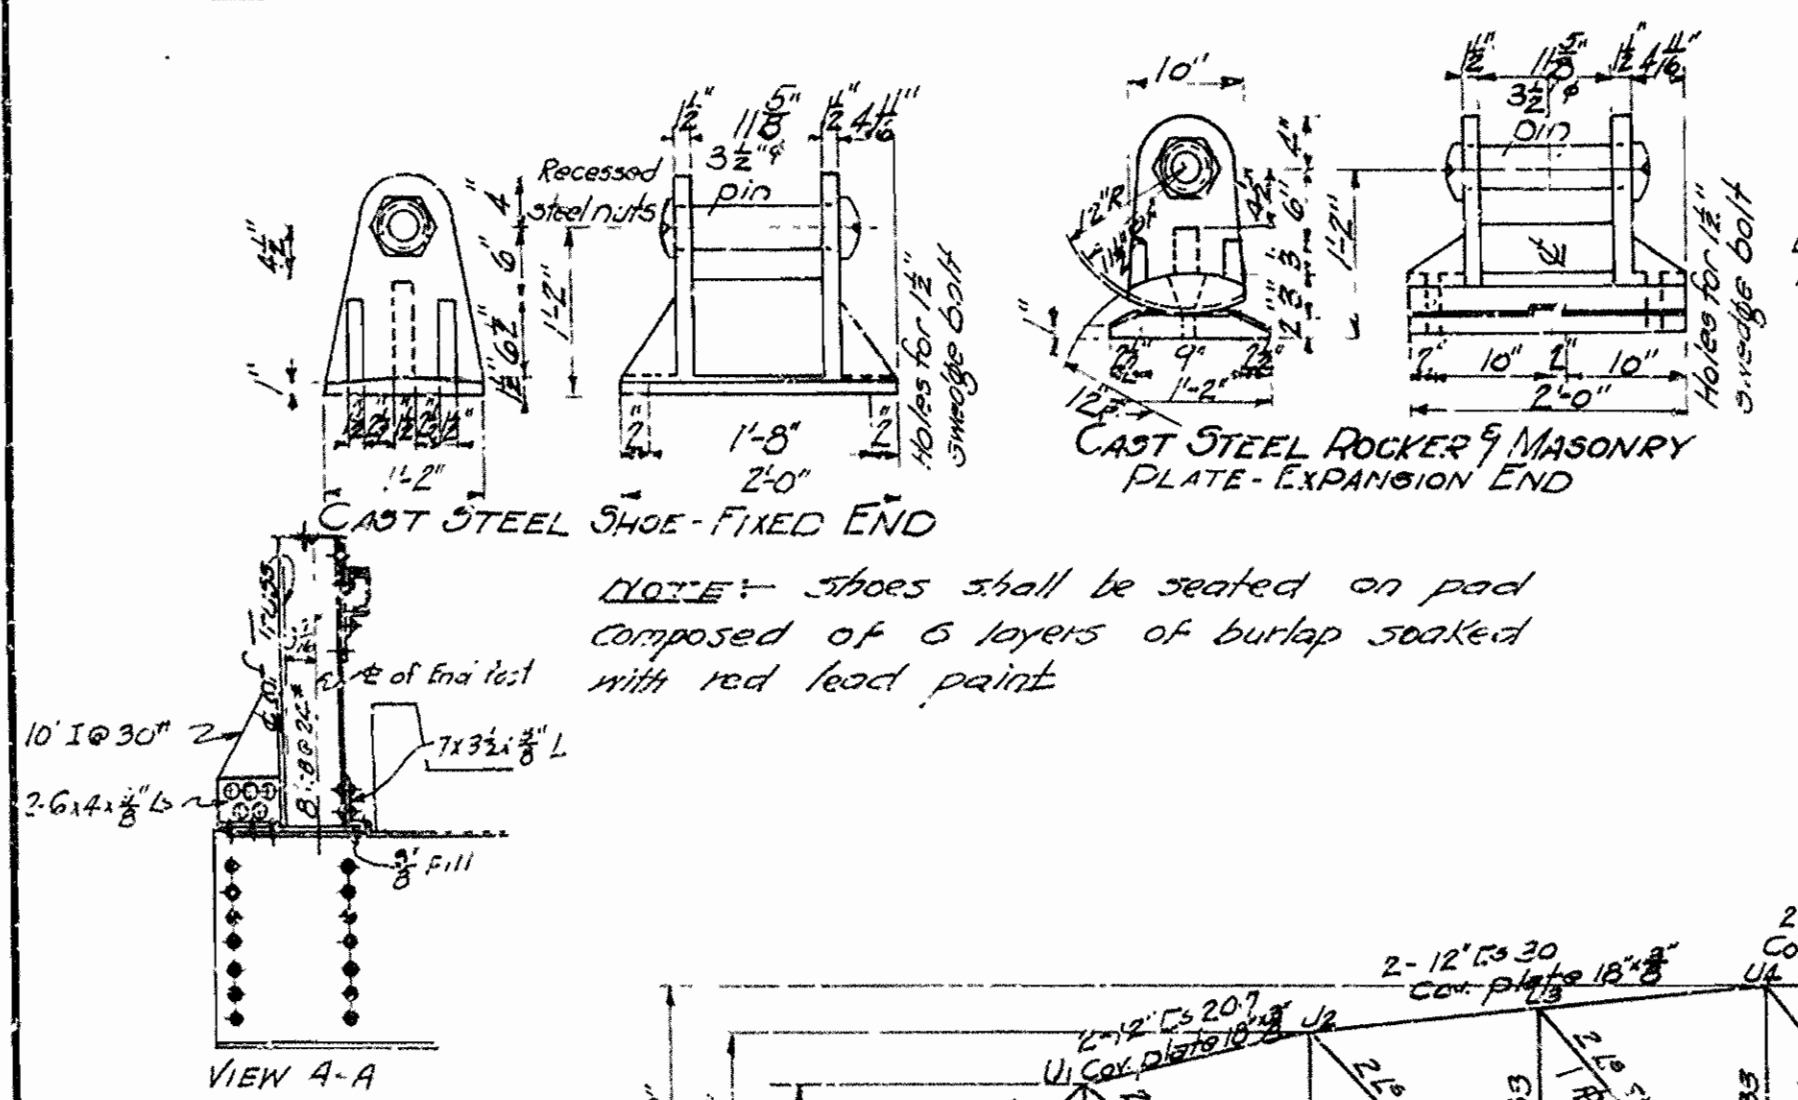 1½" 11⅝" 1½" 4 11/16"
3½"φ
pin
Recessed
steel nuts
4"
6"
6½"
1½"
4½"
1"
1'-2"
1½ 2½ 1½ 2½ 1½
1'-2"
2" 1'-8" 2"
2'-0"
Holes for 1½"
swedge bolt
CAST STEEL SHOE - FIXED END
10"
12"R
4"
6"
3"
3"
2"
4½"
1"
2½" 9" 2½"
1'-2"
1½" 11⅝" 1½" 4 11/16"
3½"φ
pin
1'-2"
℄
2" 10" 2" 10"
2'-0"
Holes for 1½"
swedge bolt
CAST STEEL ROCKER & MASONRY
PLATE - EXPANSION END
NOTE:- Shoes shall be seated on pad
composed of 6 layers of burlap soaked
with red lead paint
℄ of Truss
℄ of End Post
10" I @ 30#
7 x 3½ x ⅜" L
2-6x4x⅜" Ls
⅜" Fill
VIEW A-A
2-12" [s 30
Cov. plate 18"x⅜"
2-12" [s 20.7
Cov. plate 18"x⅜"
U1
U2
U3
U4
2 Ls
2 Ls
33
33